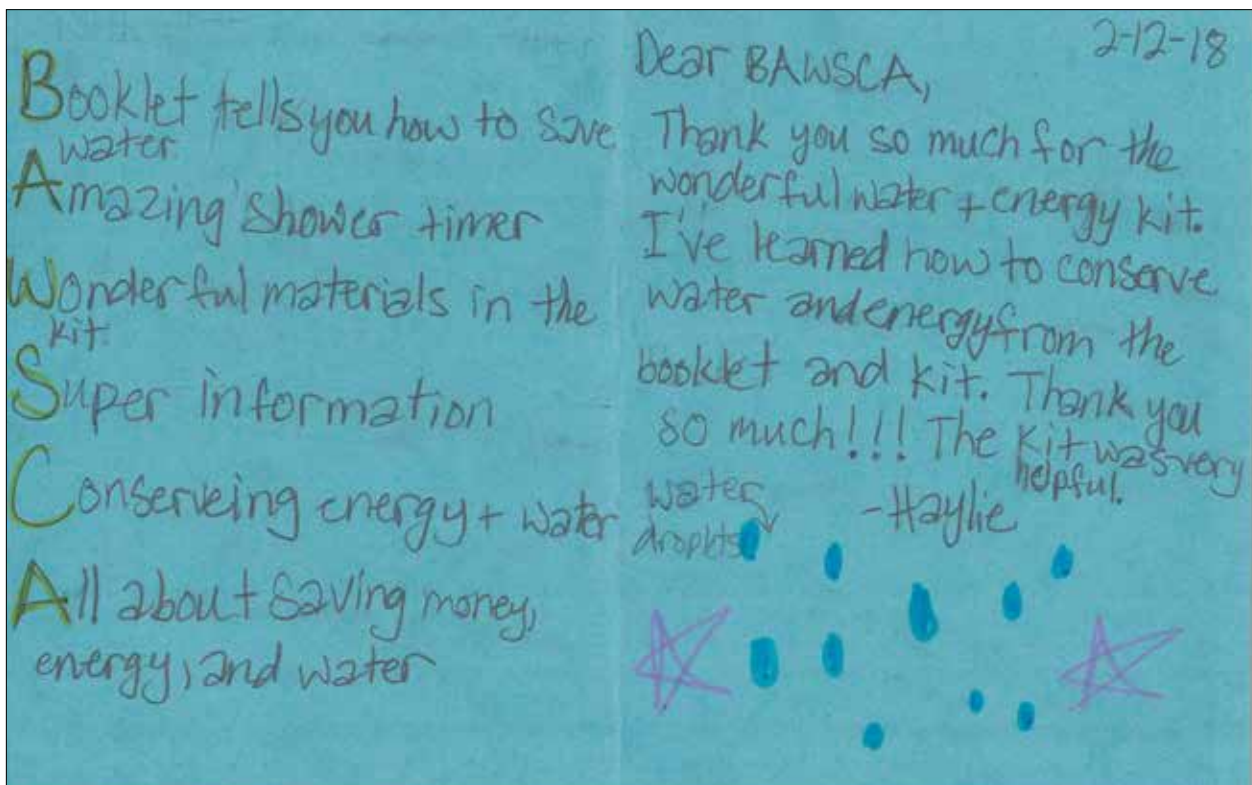 Booklet tells you how to save
water
Amazing shower timer
Wonderful materials in the
kit.
Super information
Conserveing energy + water
All about saving money,
energy, and water
2-12-18
Dear BAWSCA,
Thank you so much for the
wonderful water + energy kit.
I've learned how to conserve
water and energy from the
booklet and kit. Thank you
so much!!! The kit was very
helpful.
-Haylie
water
droplets